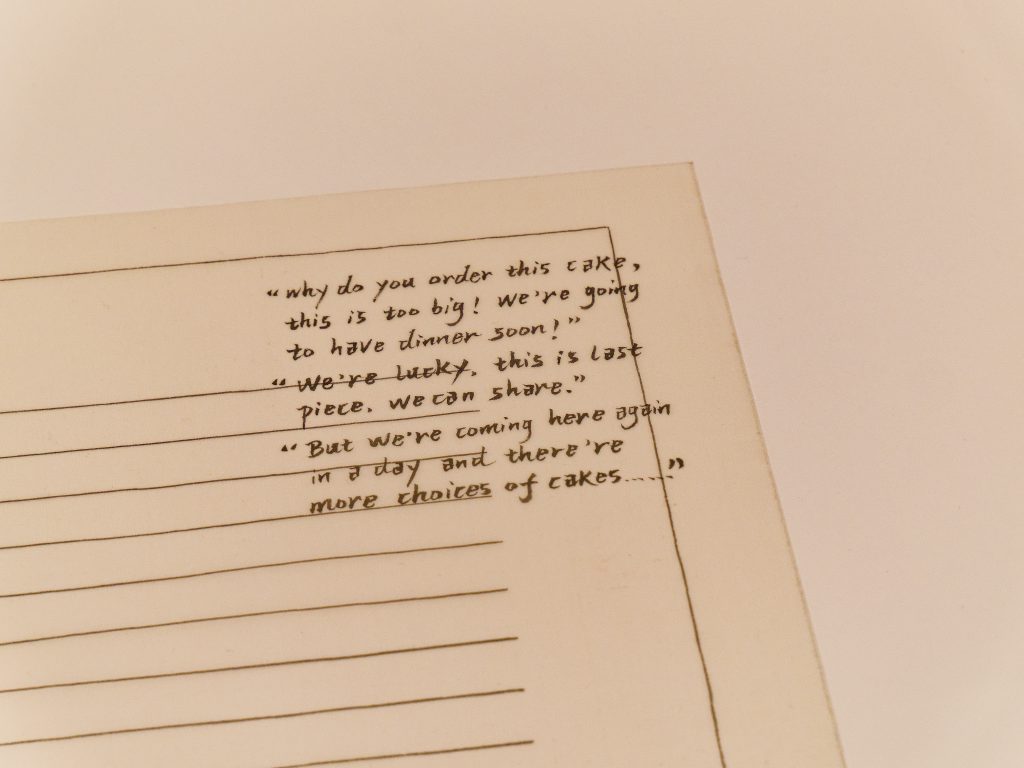 "why do you order this cake,
this is too big! we're going
to have dinner soon!"
"We're lucky, this is last
piece. we can share."
"But we're coming here again
in a day and there're
more choices of cakes......"